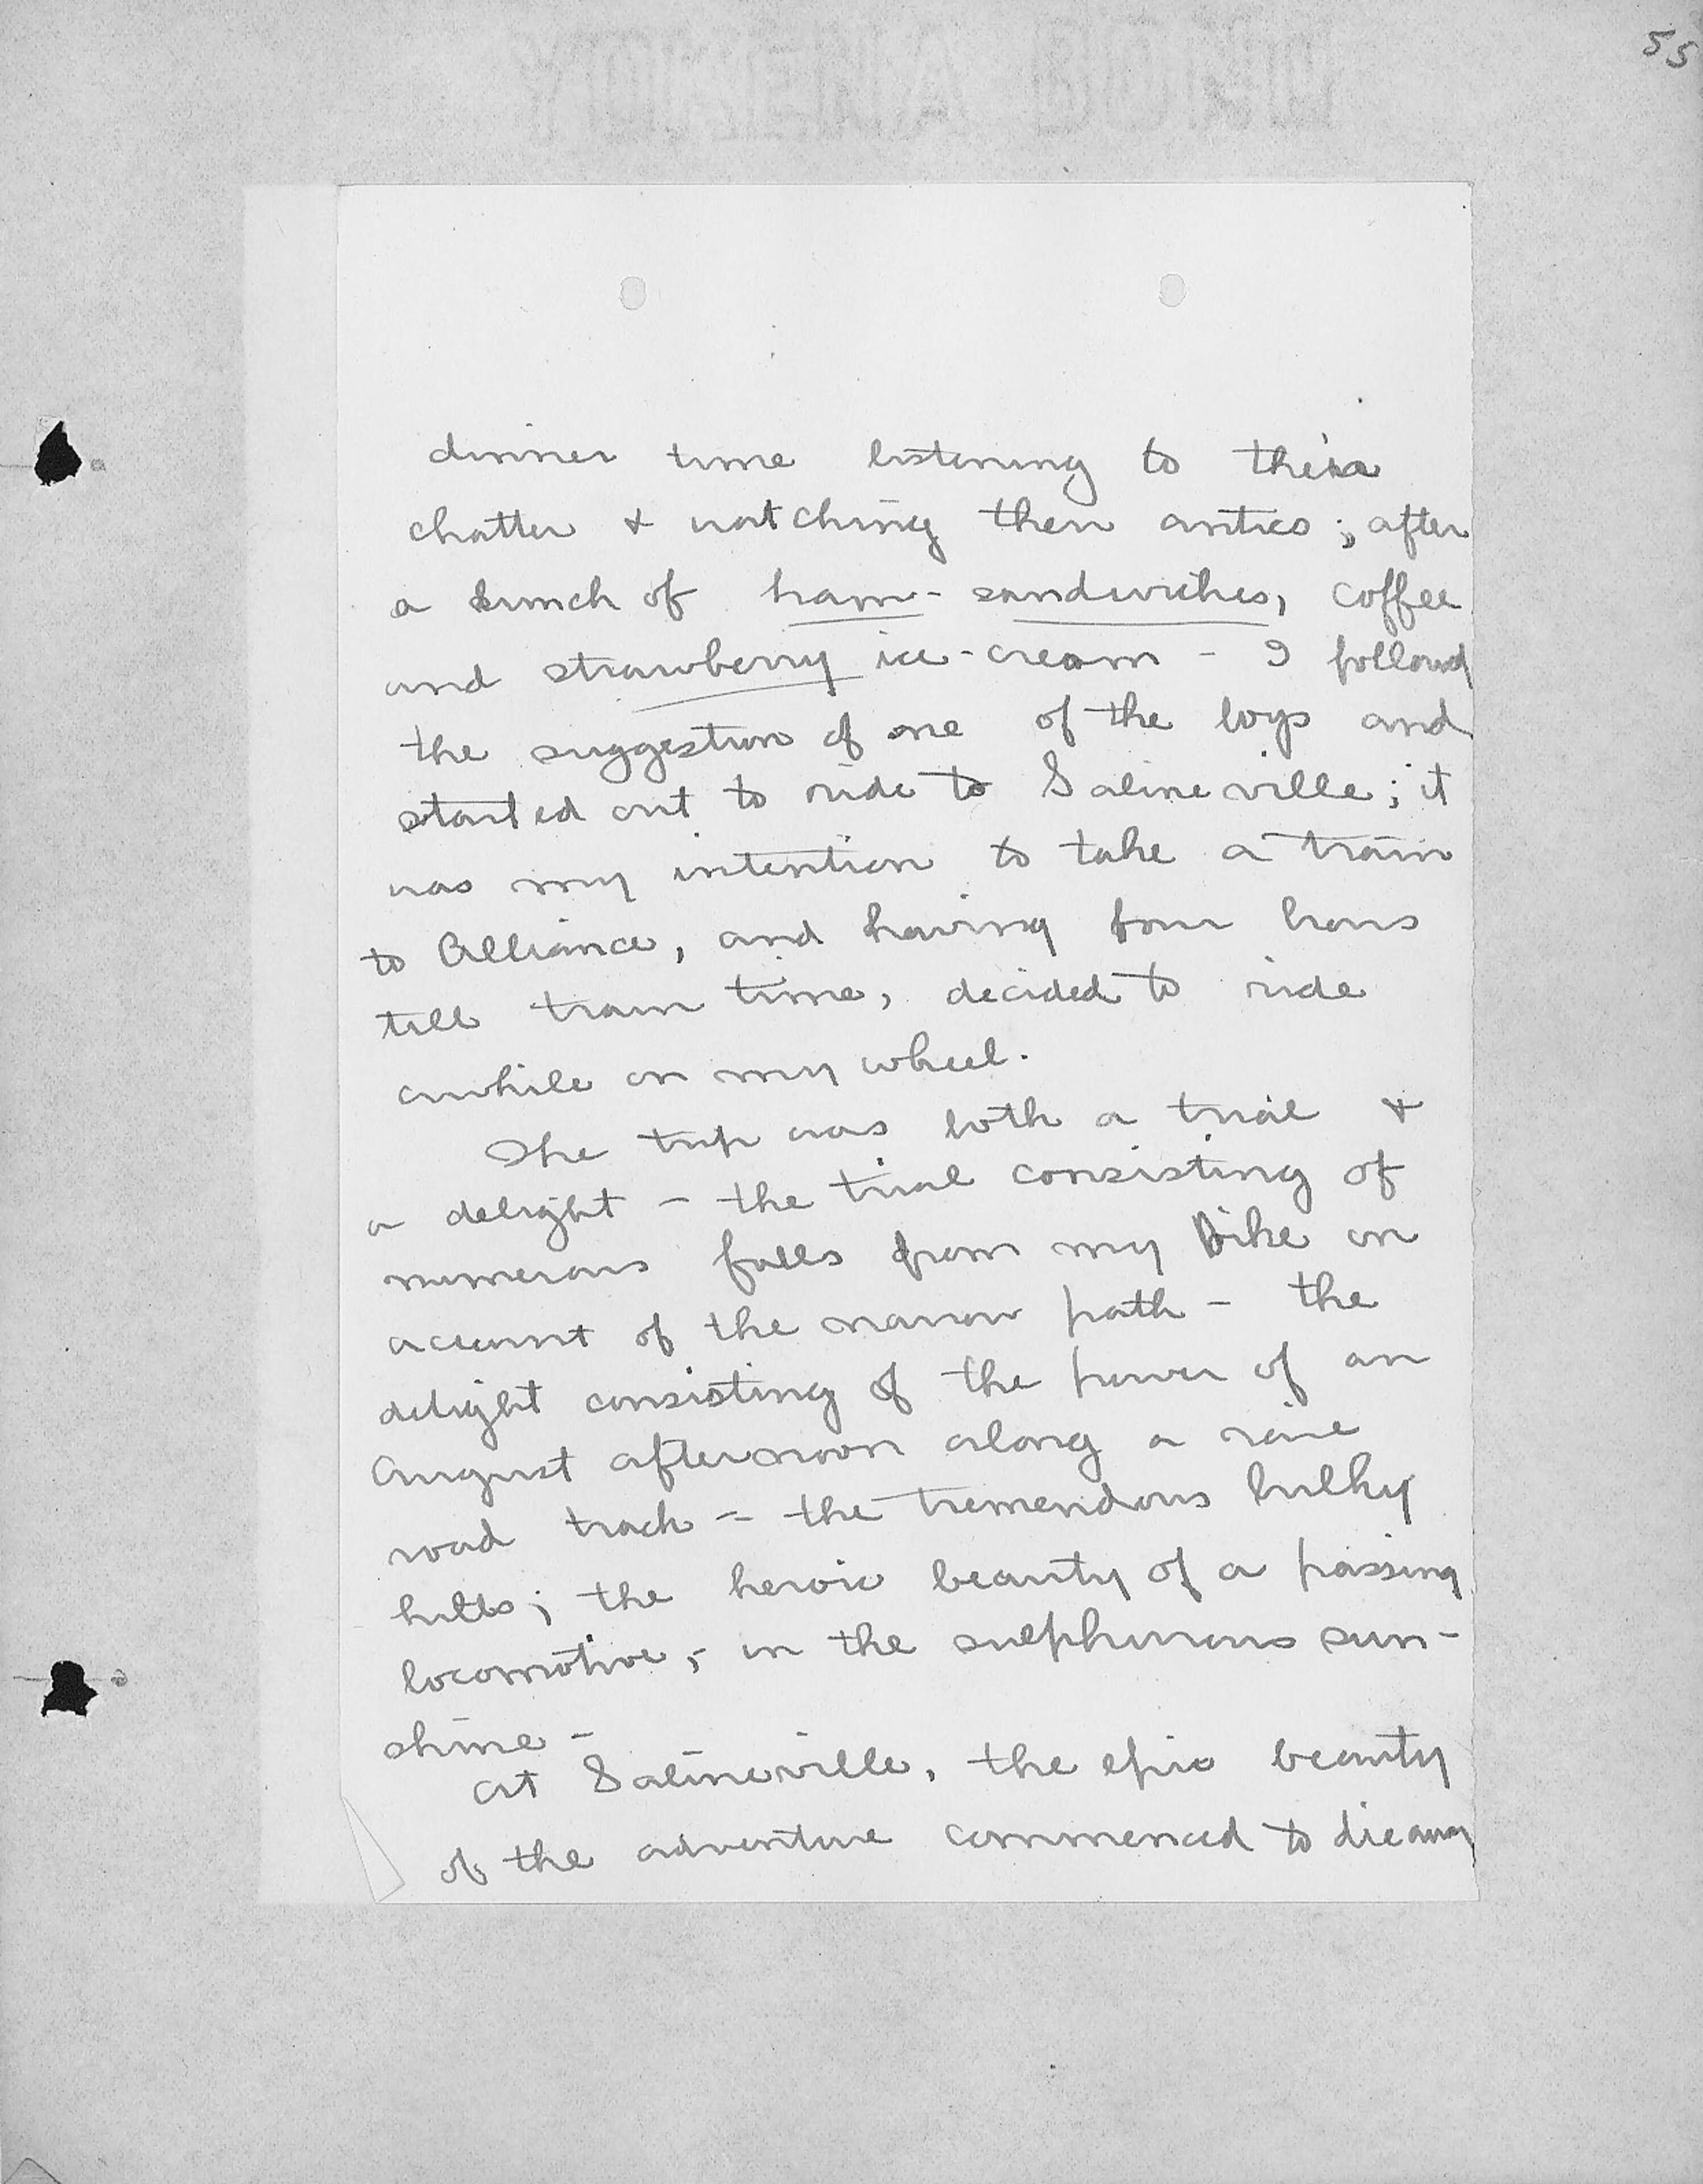 55
dinner time listening to their
chatter & watching their antics; after
a lunch of ham - sandwiches, coffee
and strawberry ice-cream - I followed
the suggestion of one of the boys and
started out to ride to Salineville; it
was my intention to take a train
to Alliance, and having four hours
till train time, decided to ride
awhile on my wheel.
The trip was both a trial &
a delight - the trial consisting of
numerous falls from my bike on
account of the narrow path - the
delight consisting of the power of an
August afternoon along a
road track - the tremendous bulky
hills; the heroic beauty of a passing
locomotive, - in the sulphurous sun-
shine -
At Salineville, the epic beauty
of the adventure commenced to die away